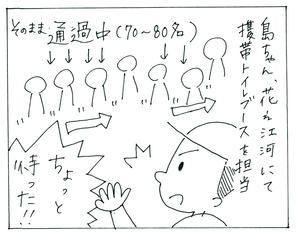 島ちゃん、花之江河にて
携帯トイレブースを担当
そのまま通過中(70〜80名)
ちょっと
待った!!